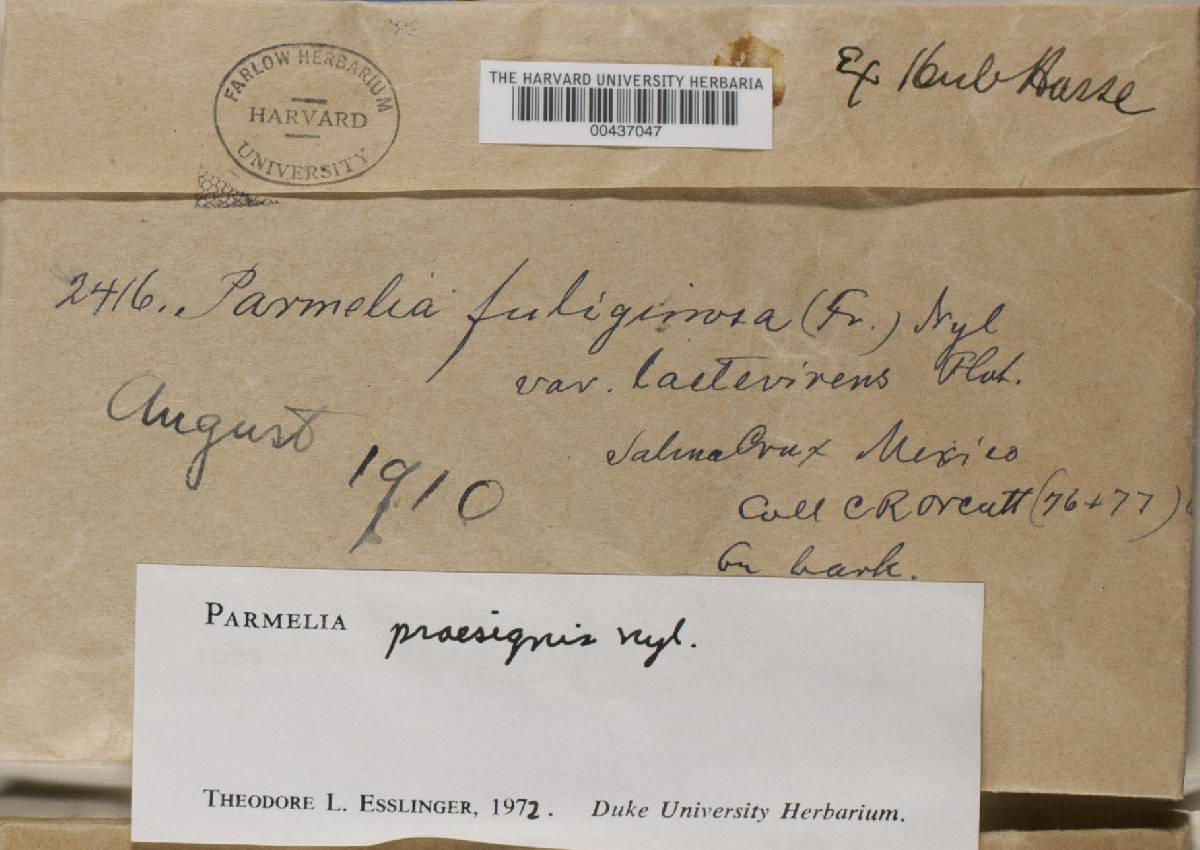 FARLOW HERBARIUM
HARVARD
UNIVERSITY
THE HARVARD UNIVERSITY HERBARIA
00437047
Ex Herb Hasse
2416. Parmelia fuliginosa (Fr.) Nyl
var. laetevirens Flot.
August
1910
Salina Crux Mexico
Coll C R Orcutt (76+77)
On bark.
PARMELIA praesignis nyl.
THEODORE L. ESSLINGER, 1972. Duke University Herbarium.